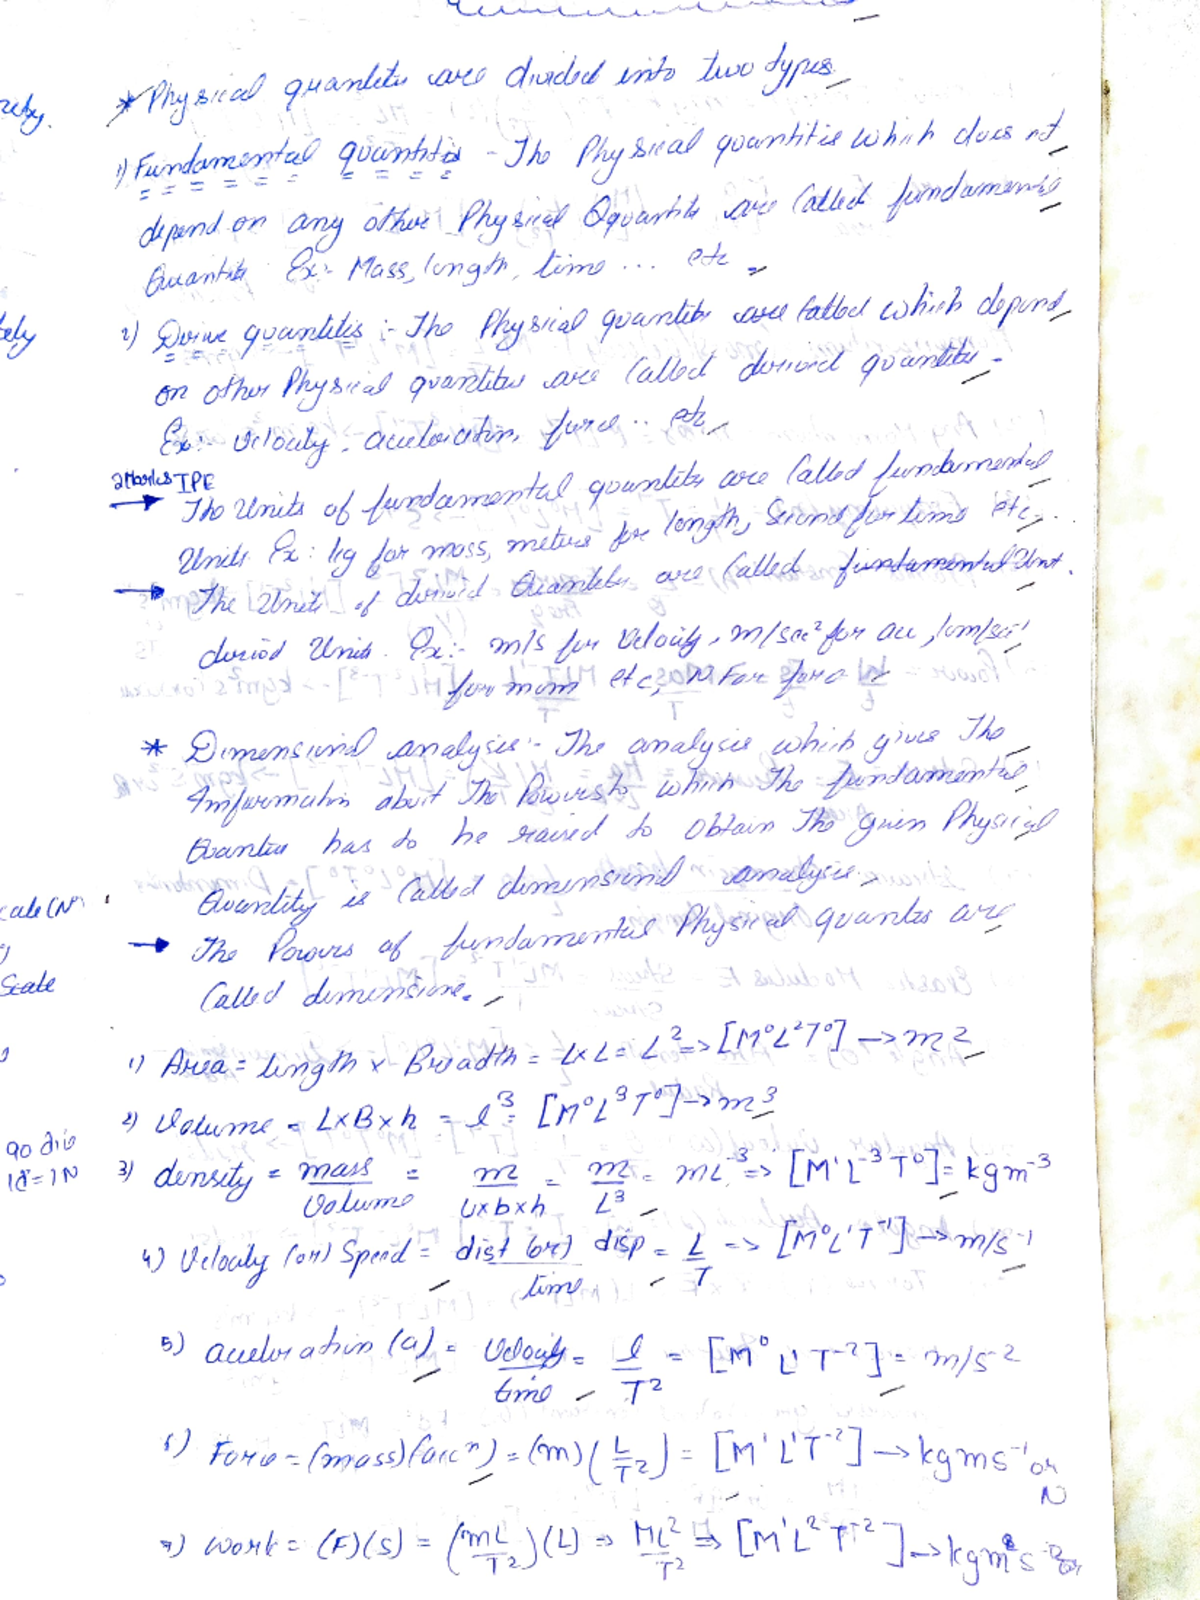 * Physical quantites are divided into two types
1) Fundamental quantitis - The Physical quantitie which does not
depend on any other Physical Qquantits are Called fundamentis
Quantits Ex:- Mass, length, time ... etc
2) Derive quantites :- The Physical quantites are Called which depend
on other Physical quantites are Called derived quantites -
Ex:- velocity, acceleration, force .. etc
2Marks IPE
→ The Units of fundamental quantites are Called fundamental
Units Ex: kg for mass, meters for length, Second for time etc...
→ The Units of derived Quantites are Called fundamental Unit.
derived Units. Ex:- m/s for Velocity, m/sec² for acc,
for mom etc, N For force
* Dimensional analysis:- The analysis which gives The
Imformation about The Powers to which The fundamental
Quantites has to be raised to Obtain The given Physical
Quantity is Called dimensional analysis.
→ The Powers of fundamental Physical quantes are
Called dimensions.
1) Area = length x Breadth = LxL = L² => [M⁰L²T⁰] → m²
2) Volume = LxBxh = l³ = [M⁰L³T⁰] → m³
3) density = mass/Volume = m/Lxbxh = m/L³ = mL⁻³ => [M¹L⁻³T⁰] = kgm⁻³
4) Velocity (or) Speed = dist (or) disp/time = L/T => [M⁰L¹T⁻¹] → m/s⁻¹
5) acceleration (a) = Velocity/time = l/T² = [M⁰L¹T⁻²] = m/s²
6) Force = (mass)(accⁿ) = (m)(L/T²) = [M¹L¹T⁻²] → kgms⁻¹ or
N
7) Work = (F)(S) = (mL/T²)(L) => ML²/T² => [M¹L²T⁻²] → kgm²s⁻²
cale (N
Scale
90 div
1d = 1N